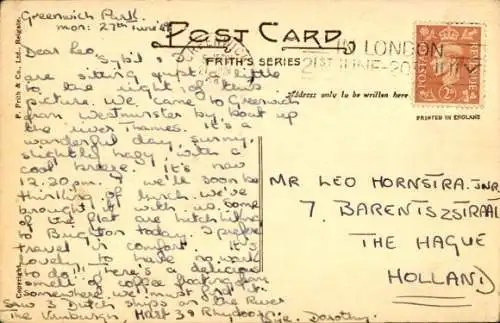 Greenwich Park.
mon: 27th June
Dear Leo,
Sybil & I
are sitting just a little
to the right of this
picture. We came to Greenwich
from Westminster by boat up
the river Thames. It's a
wonderful day, sunny,
slightly hazy, with a
cool breeze. It's now
12.20 pm. & we'll soon be
thinking of lunch. We've
brought it with us. Some
of the flat are
Brighton today. I prefer
travel in comfort. It's
lovely to have no work
to do!! There's a delicious
smell of coffee floating from
somewhere we must find it.
Saw 3 Dutch ships on the River
The
Bye. Dorothy.
POST CARD
FRITH'S SERIES
Address only to be written here
F. Frith & Co., Ltd., Reigate.
Copyright
IN LONDON
21ST JUNE-20TH JULY
POSTAGE
REVENUE
2D
PRINTED IN ENGLAND
MR LEO HORNSTRA. JNR.
7, BARENTSZSTRAAT
THE HAGUE
HOLLAND